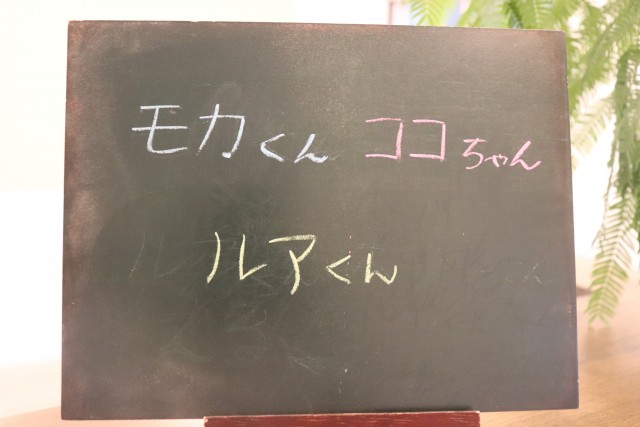 モカくん ココちゃん
ルアくん